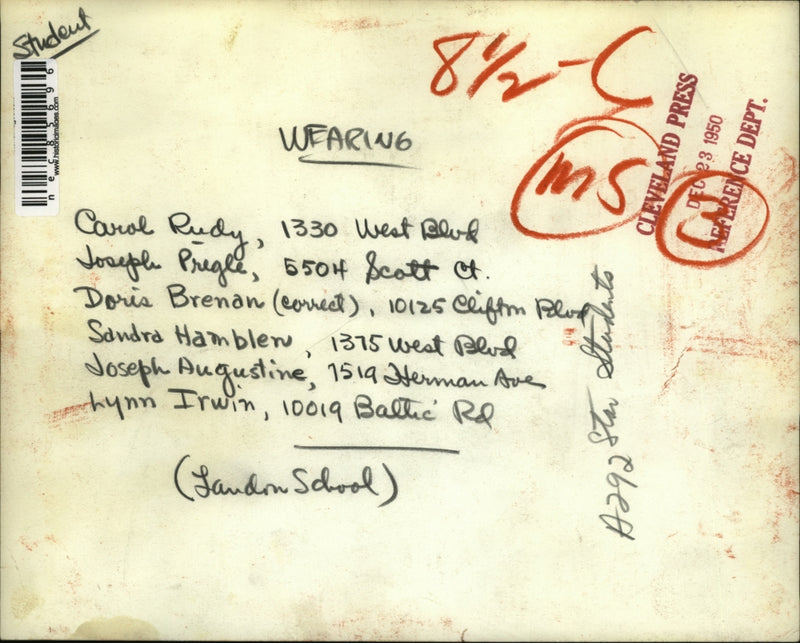 Student
nec85696
www.historicimages.com
8 1/2 - C
WEARING
MS
CLEVELAND PRESS
DEC 23 1950
REFERENCE DEPT.
Carol Rudy, 1330 West Blvd
Joseph Prigle, 5504 Scott Ct.
Doris Brenan (correct), 10125 Clifton Blvd
Sandra Hamblen, 1375 West Blvd
Joseph Augustine, 7519 Herman Ave
Lynn Irwin, 10019 Baltic Rd
(Landon School)
A292 Star Students